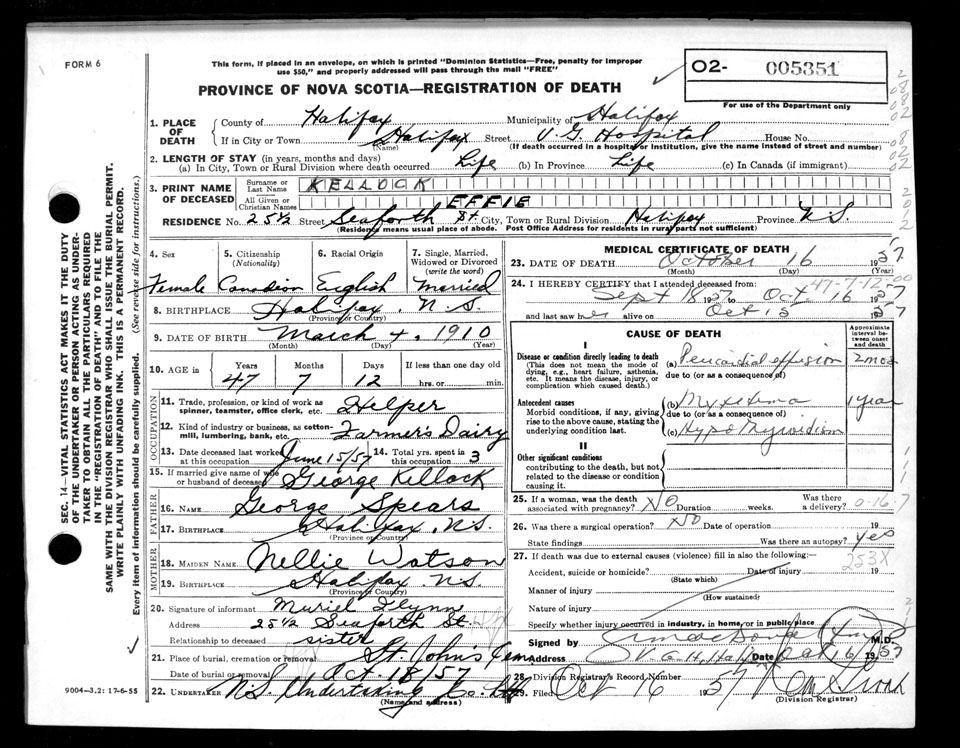 FORM 6
This form, if placed in an envelope, on which is printed "Dominion Statistics—Free, penalty for improper
use $50," and properly addressed will pass through the mail "FREE"
PROVINCE OF NOVA SCOTIA—REGISTRATION OF DEATH
O2- 005351
For use of the Department only
1. PLACE OF DEATH
County of Halifax Municipality of Halifax
If in City or Town Halifax Street V.G. Hospital House No.
(Name) (If death occurred in a hospital or institution, give the name instead of street and number)
2. LENGTH OF STAY (in years, months and days)
(a) In City, Town or Rural Division where death occurred Life (b) In Province Life (c) In Canada (if immigrant)
3. PRINT NAME OF DECEASED
Surname or Last Name KELLOCK
All Given or Christian Names EFFIE
RESIDENCE No. 25½ Street Seaforth St City, Town or Rural Division Halifax Province N.S.
(Residence means usual place of abode. Post Office Address for residents in rural parts not sufficient)
4. Sex
Female
5. Citizenship (Nationality)
Canadian
6. Racial Origin
English
7. Single, Married, Widowed or Divorced (write the word)
Married
8. BIRTHPLACE Halifax, N.S.
(Province or Country)
9. DATE OF BIRTH March 4, 1910
(Month) (Day) (Year)
10. AGE in Years Months Days If less than one day old
47 7 12 hrs. or min.
OCCUPATION
11. Trade, profession, or kind of work as spinner, teamster, office clerk, etc. Helper
12. Kind of industry or business, as cotton-mill, lumbering, bank, etc. Farmer's Dairy
13. Date deceased last worked at this occupation June 15/57
14. Total yrs. spent in this occupation 3
15. If married give name of wife or husband of deceased George Kellock
FATHER
16. NAME George Spears
17. BIRTHPLACE Halifax, N.S.
(Province or Country)
MOTHER
18. MAIDEN NAME Nellie Watson
19. BIRTHPLACE Halifax N.S.
(Province or Country)
20. Signature of informant Muriel Flynn
Address 25½ Seaforth St.
Relationship to deceased sister
21. Place of burial, cremation or removal St. John's Cem
Date of burial or removal Oct 18/57
22. UNDERTAKER N.S. Undertaking Co.
(Name and Address)
MEDICAL CERTIFICATE OF DEATH
23. DATE OF DEATH October 16 1957
(Month) (Day)
24. I HEREBY CERTIFY that I attended deceased from:
Sept 18 1957 to Oct 16 1957
and last saw her alive on Oct 15 1957
47-7-12-00
CAUSE OF DEATH
Approximate interval between onset and death
I
Disease or condition directly leading to death
(This does not mean the mode of dying, e.g., heart failure, asthenia, etc. It means the disease, injury, or complication which caused death.)
(a) Pericardial effusion 2 mos
due to (or as a consequence of)
Antecedent causes
Morbid conditions, if any, giving rise to the above cause, stating the underlying condition last.
(b) Myxedema 1 year
due to (or as a consequence of)
(c) Hypothyroidism
II
Other significant conditions
contributing to the death, but not related to the disease or condition causing it.
25. If a woman, was the death associated with pregnancy? NO Duration weeks. Was there a delivery?
0-16-7
26. Was there a surgical operation? NO Date of operation 19
State findings Was there an autopsy? yes
27. If death was due to external causes (violence) fill in also the following:—
253X
Accident, suicide or homicide? Date of injury 19
(State which)
Manner of injury
(How sustained)
Nature of injury
Specify whether injury occurred in industry, in home, or in public place
Signed by M.D.
Address V.G.H. Date Oct 16 1957
28. Division Registrar's Record Number
29. Filed Oct 16 1957
(Division Registrar)
9004—3.2: 17-6-55
SEC. 14—VITAL STATISTICS ACT MAKES IT THE DUTY
OF THE UNDERTAKER OR PERSON ACTING AS UNDER-
TAKER TO OBTAIN ALL THE PARTICULARS REQUIRED
IN THE "REGISTRATION OF DEATH" AND TO FILE THE
SAME WITH THE DIVISION REGISTRAR WHO SHALL ISSUE THE BURIAL PERMIT.
WRITE PLAINLY WITH UNFADING INK. THIS IS A PERMANENT RECORD.
Every item of information should be carefully supplied. (See reverse side for instructions.)